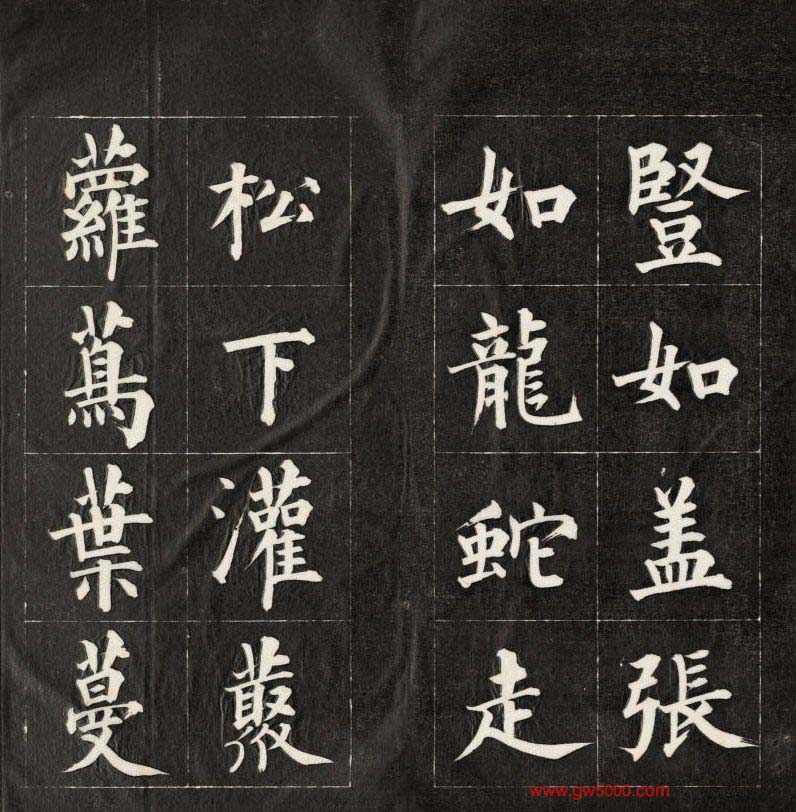 豎如盖張
如龍蛇走
松下灌藂
蘿蔦葉蔓
www.gw5000.com